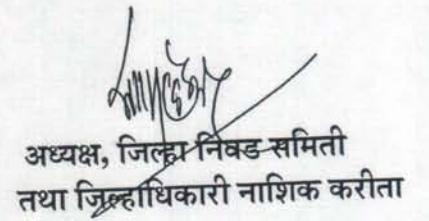 अध्यक्ष, जिल्हा निवड समिती
तथा जिल्हाधिकारी नाशिक करीता